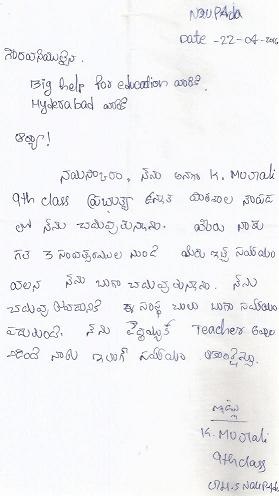 Naupada
Date - 22-04-
గౌరవనీయులైన
Big help for education వారికి.
Hyderabad వారికి
ఆర్యా!
నమస్కారం, నేను అనగా K. Murali
9th class ప్రభుత్వ ఉన్నత పాఠశాల నౌపడ
లో నేను చదువుతున్నాను. మీరు నాకు
గత 3 సంవత్సరముల నుండి మీరు ఇచ్చే సహాయం
వలన నేను బాగా చదువుతున్నాను. నేను
చదువు కోవడానికి ఈ సంస్థ చాలా బాగా సహాయం
పడుతుంది. నేను పెద్దయ్యాక Teacher
నాకు సహాయం
ఇట్లు
K. Murali
9th class
G.H.S Naupada